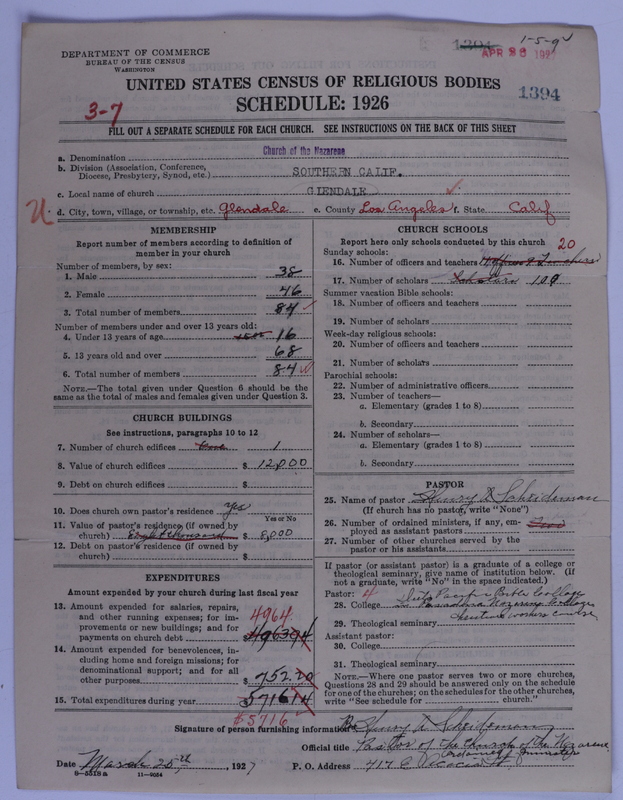 1-5-9
1394
APR 28 192
DEPARTMENT OF COMMERCE
BUREAU OF THE CENSUS
WASHINGTON
UNITED STATES CENSUS OF RELIGIOUS BODIES
SCHEDULE: 1926
1394
3-7
FILL OUT A SEPARATE SCHEDULE FOR EACH CHURCH. SEE INSTRUCTIONS ON THE BACK OF THIS SHEET
a. Denomination Church of the Nazarene
b. Division (Association, Conference, Diocese, Presbytery, Synod, etc.) SOUTHERN CALIF.
c. Local name of church GLENDALE
U.
d. City, town, village, or township, etc. Glendale e. County Los Angeles f. State Calif
MEMBERSHIP
Report number of members according to definition of
member in your church
Number of members, by sex:
1. Male 38
2. Female 46
3. Total number of members 84
Number of members under and over 13 years old:
4. Under 13 years of age 16
5. 13 years old and over 68
6. Total number of members 84
NOTE.—The total given under Question 6 should be the
same as the total of males and females given under Question 3.
CHURCH BUILDINGS
See instructions, paragraphs 10 to 12
7. Number of church edifices One 1
8. Value of church edifices $ 12,000
9. Debt on church edifices $
10. Does church own pastor's residence? yes
Yes or No
11. Value of pastor's residence (if owned by
church) Eight thousand $ 8,000
12. Debt on pastor's residence (if owned by
church) $
EXPENDITURES
Amount expended by your church during last fiscal year
13. Amount expended for salaries, repairs,
and other running expenses; for im-
provements or new buildings; and for
payments on church debt 4964 $ 4963.94
14. Amount expended for benevolences, in-
cluding home and foreign missions; for
denominational support; and for all
other purposes $ 752.20
15. Total expenditures during year $ 5716.14
$5716
CHURCH SCHOOLS
Report here only schools conducted by this church
Sunday schools: 20
16. Number of officers and teachers Officers & Teachers
17. Number of scholars Scholars 100
Summer vacation Bible schools:
18. Number of officers and teachers
19. Number of scholars
Week-day religious schools:
20. Number of officers and teachers
21. Number of scholars
Parochial schools:
22. Number of administrative officers
23. Number of teachers—
a. Elementary (grades 1 to 8)
b. Secondary
24. Number of scholars—
a. Elementary (grades 1 to 8)
b. Secondary
PASTOR
25. Name of pastor Henry D Scheideman
(If church has no pastor, write "None")
26. Number of ordained ministers, if any, em-
ployed as assistant pastors
27. Number of other churches served by the
pastor or his assistants
If pastor (or assistant pastor) is a graduate of a college or
theological seminary, give name of institution below. (If
not a graduate, write "No" in the space indicated.)
Pastor: 4
28. College
29. Theological seminary
Assistant pastor:
30. College
31. Theological seminary
NOTE.—Where one pastor serves two or more churches,
Questions 28 and 29 should be answered only on the schedule
for one of the churches; on the schedules for the other churches,
write "See schedule for church."
Signature of person furnishing information Rev Henry D Scheideman
Official title Pastor of the Church of the Nazarene
ordained minister
Date March 25th, 1927 P. O. Address 717 E Acacia St
8—5518 a 11—9054